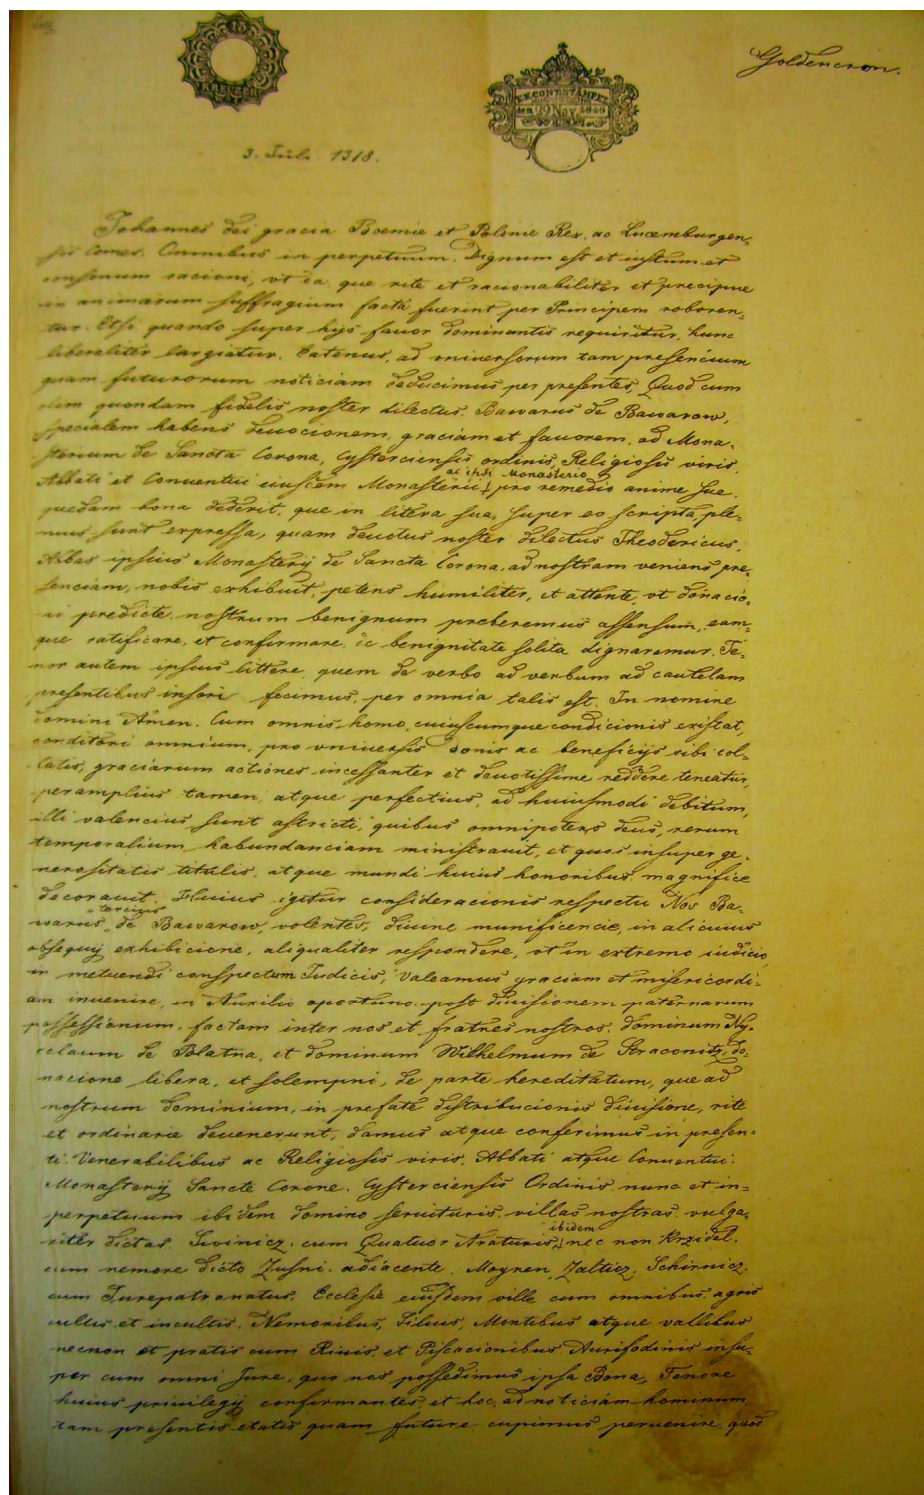 Goldencron.
15
KREUZER
EX CONT. STÄMPEL
den 29 Nov
3. Juli 1318.
Johannes dei gracia Boemie et Polonie Rex, ac Lucemburgen=
sis Comes. Omnibus in perpetuum. Dignum est et iustum et
consonum racioni, vt ea, que rite et racionabiliter et precipue
in animarum suffragium facta fuerint per Principem roboren=
tur. Etsi quando super hijs fauor dominantis requiritur, hunc
liberaliter largiatur. Eatenus, ad vniuersorum tam presencium
quam futurorum noticiam deducimus per presentes, Quod cum
olim quondam fidelis noster dilectus, Bawarus de Bawarow,
specialem habens deuocionem, graciam et fauorem, ad Mona=
sterium de Sancta Corona, Cysterciensis ordinis, Religiosis viris.
ac ipsi Monasterio
Abbati et Conuentui eiusdem Monasterii pro remedio anime sue.
quedam bona dederit, que in litera sua, super eo scripta, ple=
nius sunt expressa, quam deuotus noster dilectus Theodericus,
Abbas ipsius Monasterij de Sancta Corona, ad nostram veniens pre=
senciam, nobis exhibuit, petens humiliter, et attente, vt donacio=
ni predicte nostrum benignum preberemus assensum, eam=
que ratificare, et confirmare, de benignitate solita dignaremur. Te=
nor autem ipsius littere, quem de verbo ad verbum ad cautelam
presentibus inseri fecimus, per omnia talis est. In nomine
domini Amen. Cum omnis homo, cuiuscumque condicionis existat,
conditori omnium, pro vniuersis donis ac beneficijs sibi col=
latis, graciarum actiones incessanter et deuotissime reddere teneatur,
peramplius tamen, atque perfectius, ad huiusmodi debitum,
illi valencius sunt astricti, quibus omnipotens deus, rerum
temporalium habundanciam ministrauit, et quos insuper ge=
nerositatis titulis, atque mundi huius honoribus magnifice
decorauit. Huius igitur consideracionis respectu Nos Ba=
tercius
warus, de Bawarow, volentes, diuine munificencie, in alicuius
obsequij exhibicione, aliqualiter respondere, vt in extremo iudicio,
in metuendi conspectum Judicis, valeamus graciam et misericordi=
am inuenire, in Auxilio oportuno, post diuisionem paternarum
possessionum, factam inter nos et fratres nostros, dominum Ny=
colaum de Blatna, et dominum Wilhelmum de Straconitz, do=
nacione libera, et solempni, de parte hereditatum, que ad
nostrum dominium, in prefate distribucionis diuisione, rite
et ordinarie deuenerunt, damus atque conferimus in presen=
ti. Venerabilibus ac Religiosis viris. Abbati atque Conuentui.
Monasterij Sancte Corone. Cysterciensis Ordinis nunc et in=
perpetuum ibidem domino seruituris villas nostras vulga=
ibidem
riter dictas. Siwinicz. cum Quatuor Araturis, nec non Krzidel.
cum nemore dicto Zusni. adiacente. Moynen, Zalticz, Schirnicz.
cum Jurepatronatus. Ecclesie eiusdem ville cum omnibus. agris
cultis et incultis. Nemoribus, Siluis, Montibus atque vallibus
necnon et pratis cum Riuis, et Piscacionibus Aurifodinis insu=
per cum omni Jure, quo nos possedimus ipsa Bona, Tenore
huius priuilegij confirmantes, et hoc, ad noticiam hominum
tam presentis etatis quam future cupimus peruenire, quod